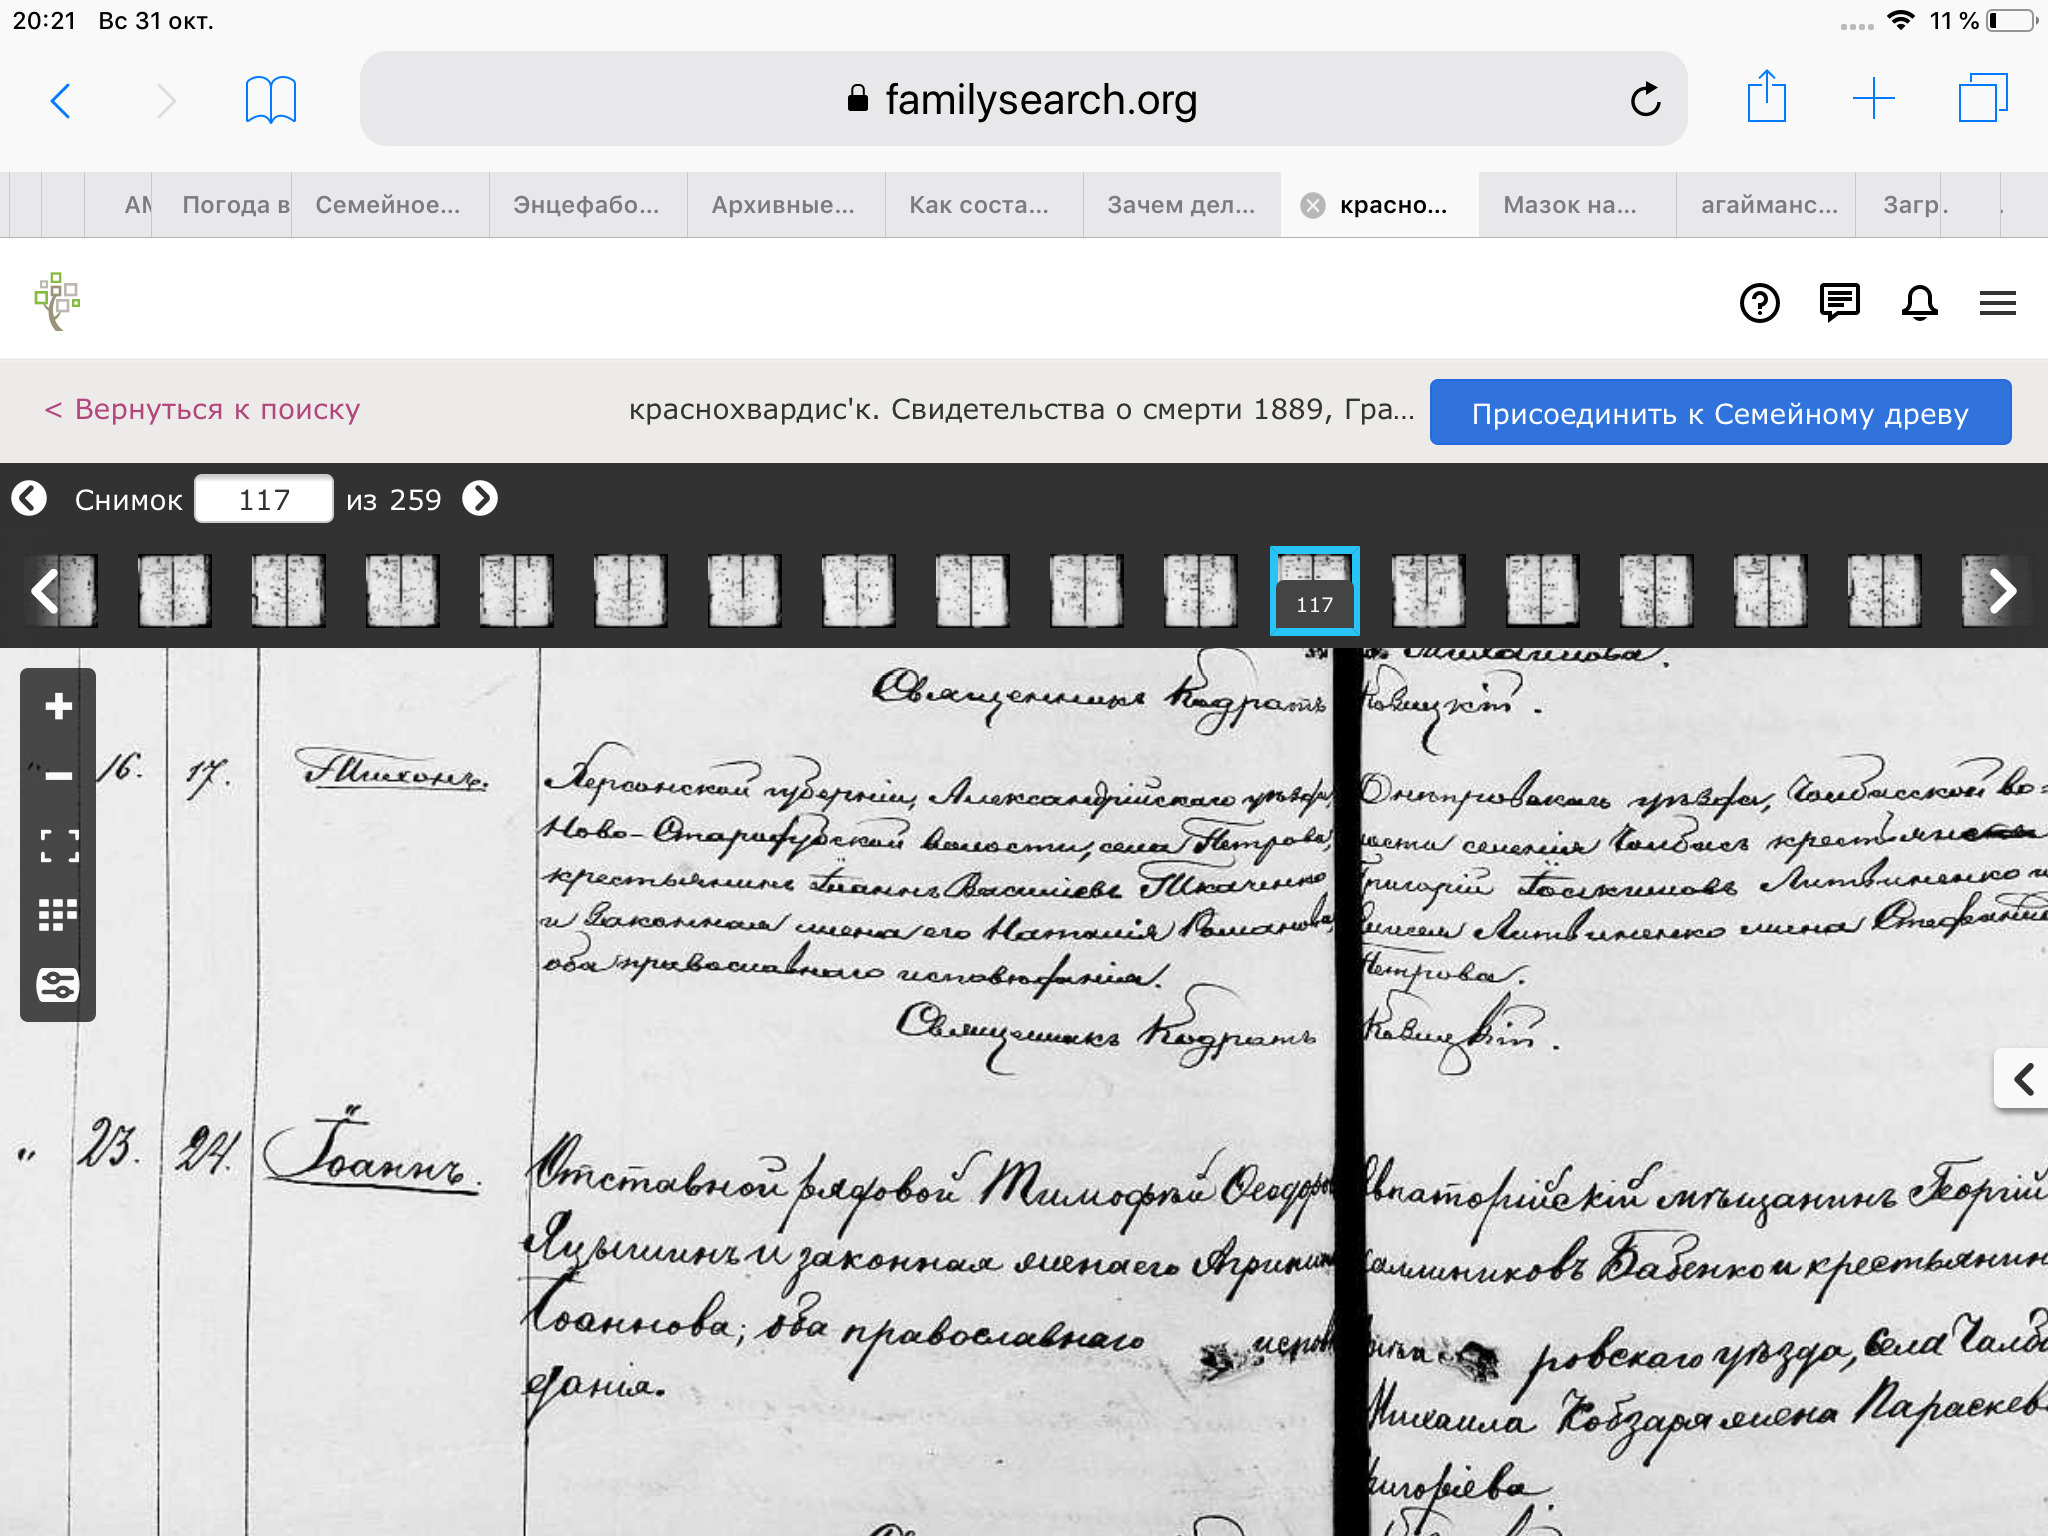 20:21 Вс 31 окт.
11 %
familysearch.org
АМ Погода в Семейное... Энцефабо... Архивные... Как соста... Зачем дел... красно... Мазок на... агайманс... Загр.
< Вернуться к поиску
краснохвардис'к. Свидетельства о смерти 1889, Гра...
Присоединить к Семейному древу
Снимок 117 из 259
117
Михаилова.
Священникъ Кодратъ
" 16. 17. Тихонъ.
Херсонской губерніи, Александрійскаго уѣзда,
Ново-Стародубской волости, села Петрова,
крестьянинъ Іоаннъ Васильевъ Ткаченко
и законная жена его Наталія Романова,
оба православнаго исповѣданія.
Священникъ Кодратъ
Днѣпровскаго уѣзда, Чолбасской во=
лости селенія Чолбасъ
Григорій Іоакимовъ Литвиненко и
Литвиненко жена
Петрова.
" 23. 24. Іоаннъ.
Отставной рядовой Тимофѣй Ѳеодоро
Яцышинъ и законная жена его Агрипина
Іоаннова; оба православнаго исповѣ
данія.
Евпаторійскій мѣщанинъ Георгій
Каллиниковъ Бабенко и крестьянин
ровскаго уѣзда, села Чалб
Михаила Кобзаря жена Параскев
Григоріева.